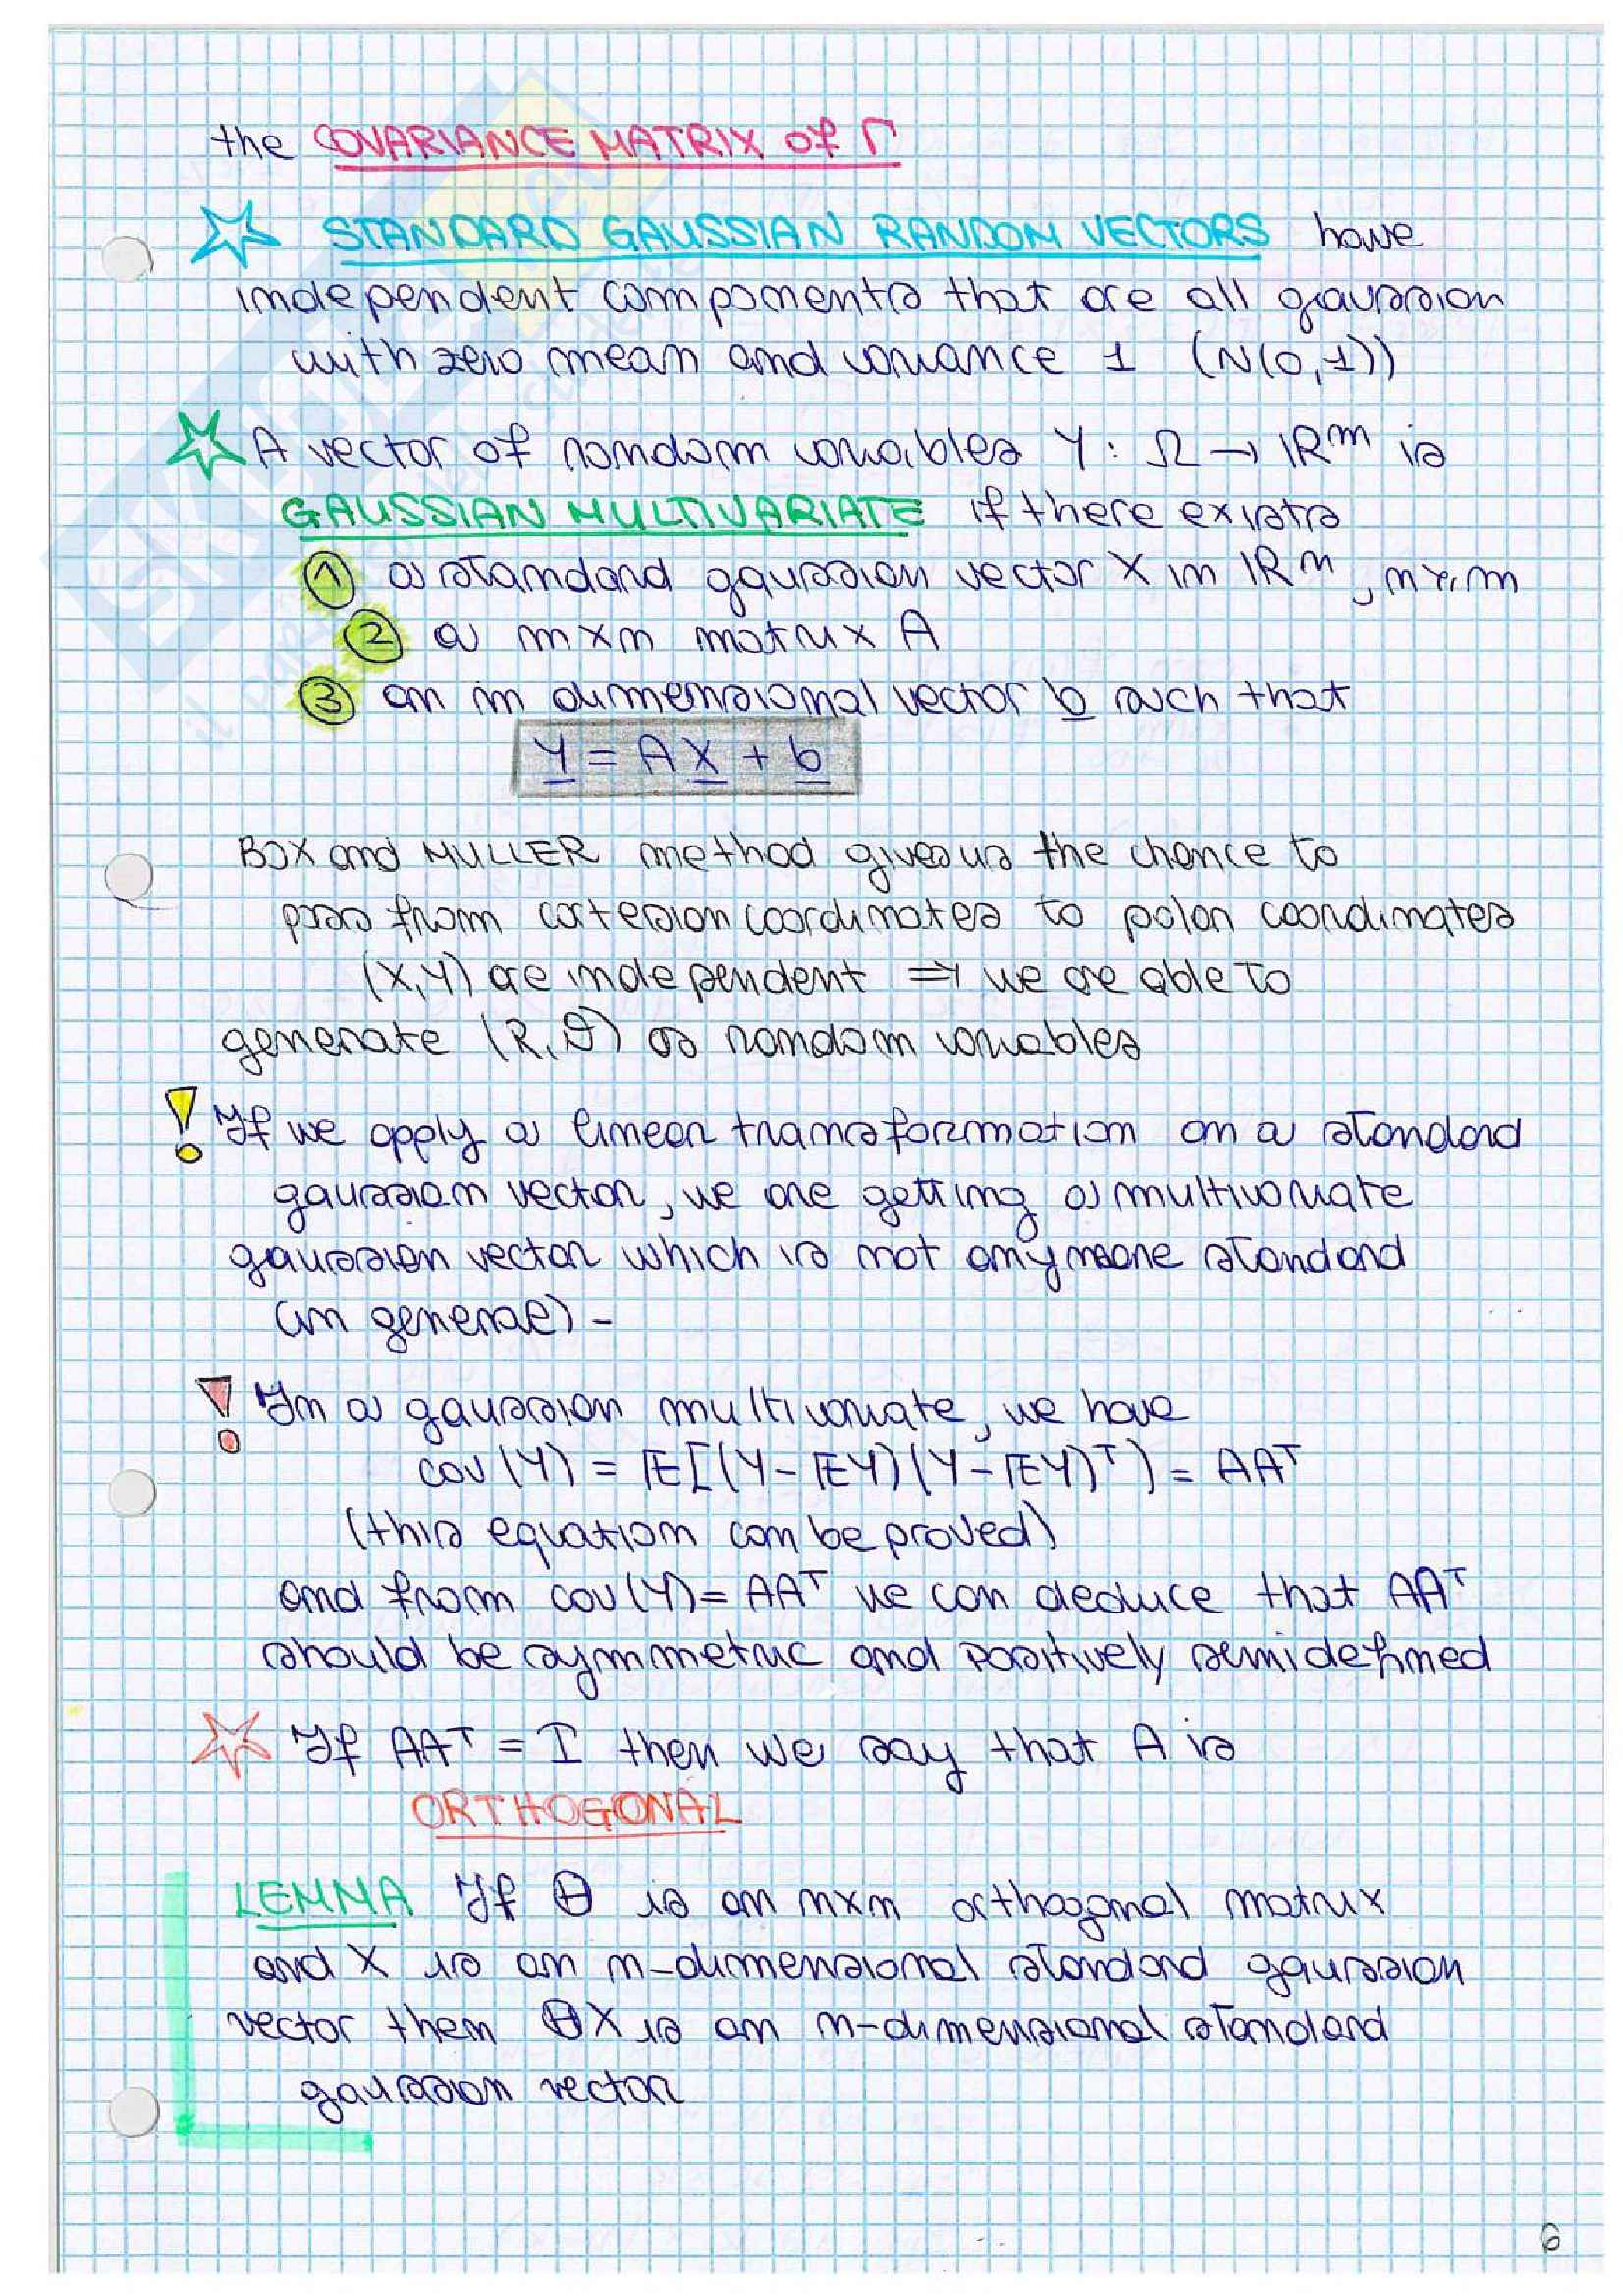 the COVARIANCE MATRIX of Γ
STANDARD GAUSSIAN RANDOM VECTORS have
independent components that are all gaussian
with zero mean and variance 1 (N(0,1))
A vector of random variables Y: Ω → ℝᵐ is
GAUSSIAN MULTIVARIATE if there exists
① a standard gaussian vector X in ℝⁿ,
② a m×n matrix A
③ an m dimensional vector b such that
Y = AX + b
BOX and MULLER method gives us the chance to
pass from cartesian coordinates to polar coordinates
(X,Y) are independent ⇒ we are able to
generate (R,ϑ) as random variables
! If we apply a linear transformation on a standard
gaussian vector, we are getting a multivariate
gaussian vector which is not anymore standard
(in general) -
! In a gaussian multivariate, we have
cov(Y) = 𝔼[(Y-𝔼Y)(Y-𝔼Y)ᵀ) = AAᵀ
(this equation can be proved)
and from cov(Y) = AAᵀ we can deduce that AAᵀ
should be symmetric and positively semidefined
If AAᵀ = I then we say that A is
ORTHOGONAL
LEMMA If Θ is an n×n orthogonal matrix
and X is an n-dimensional standard gaussian
vector then ΘX is an n-dimensional standard
gaussian vector
6